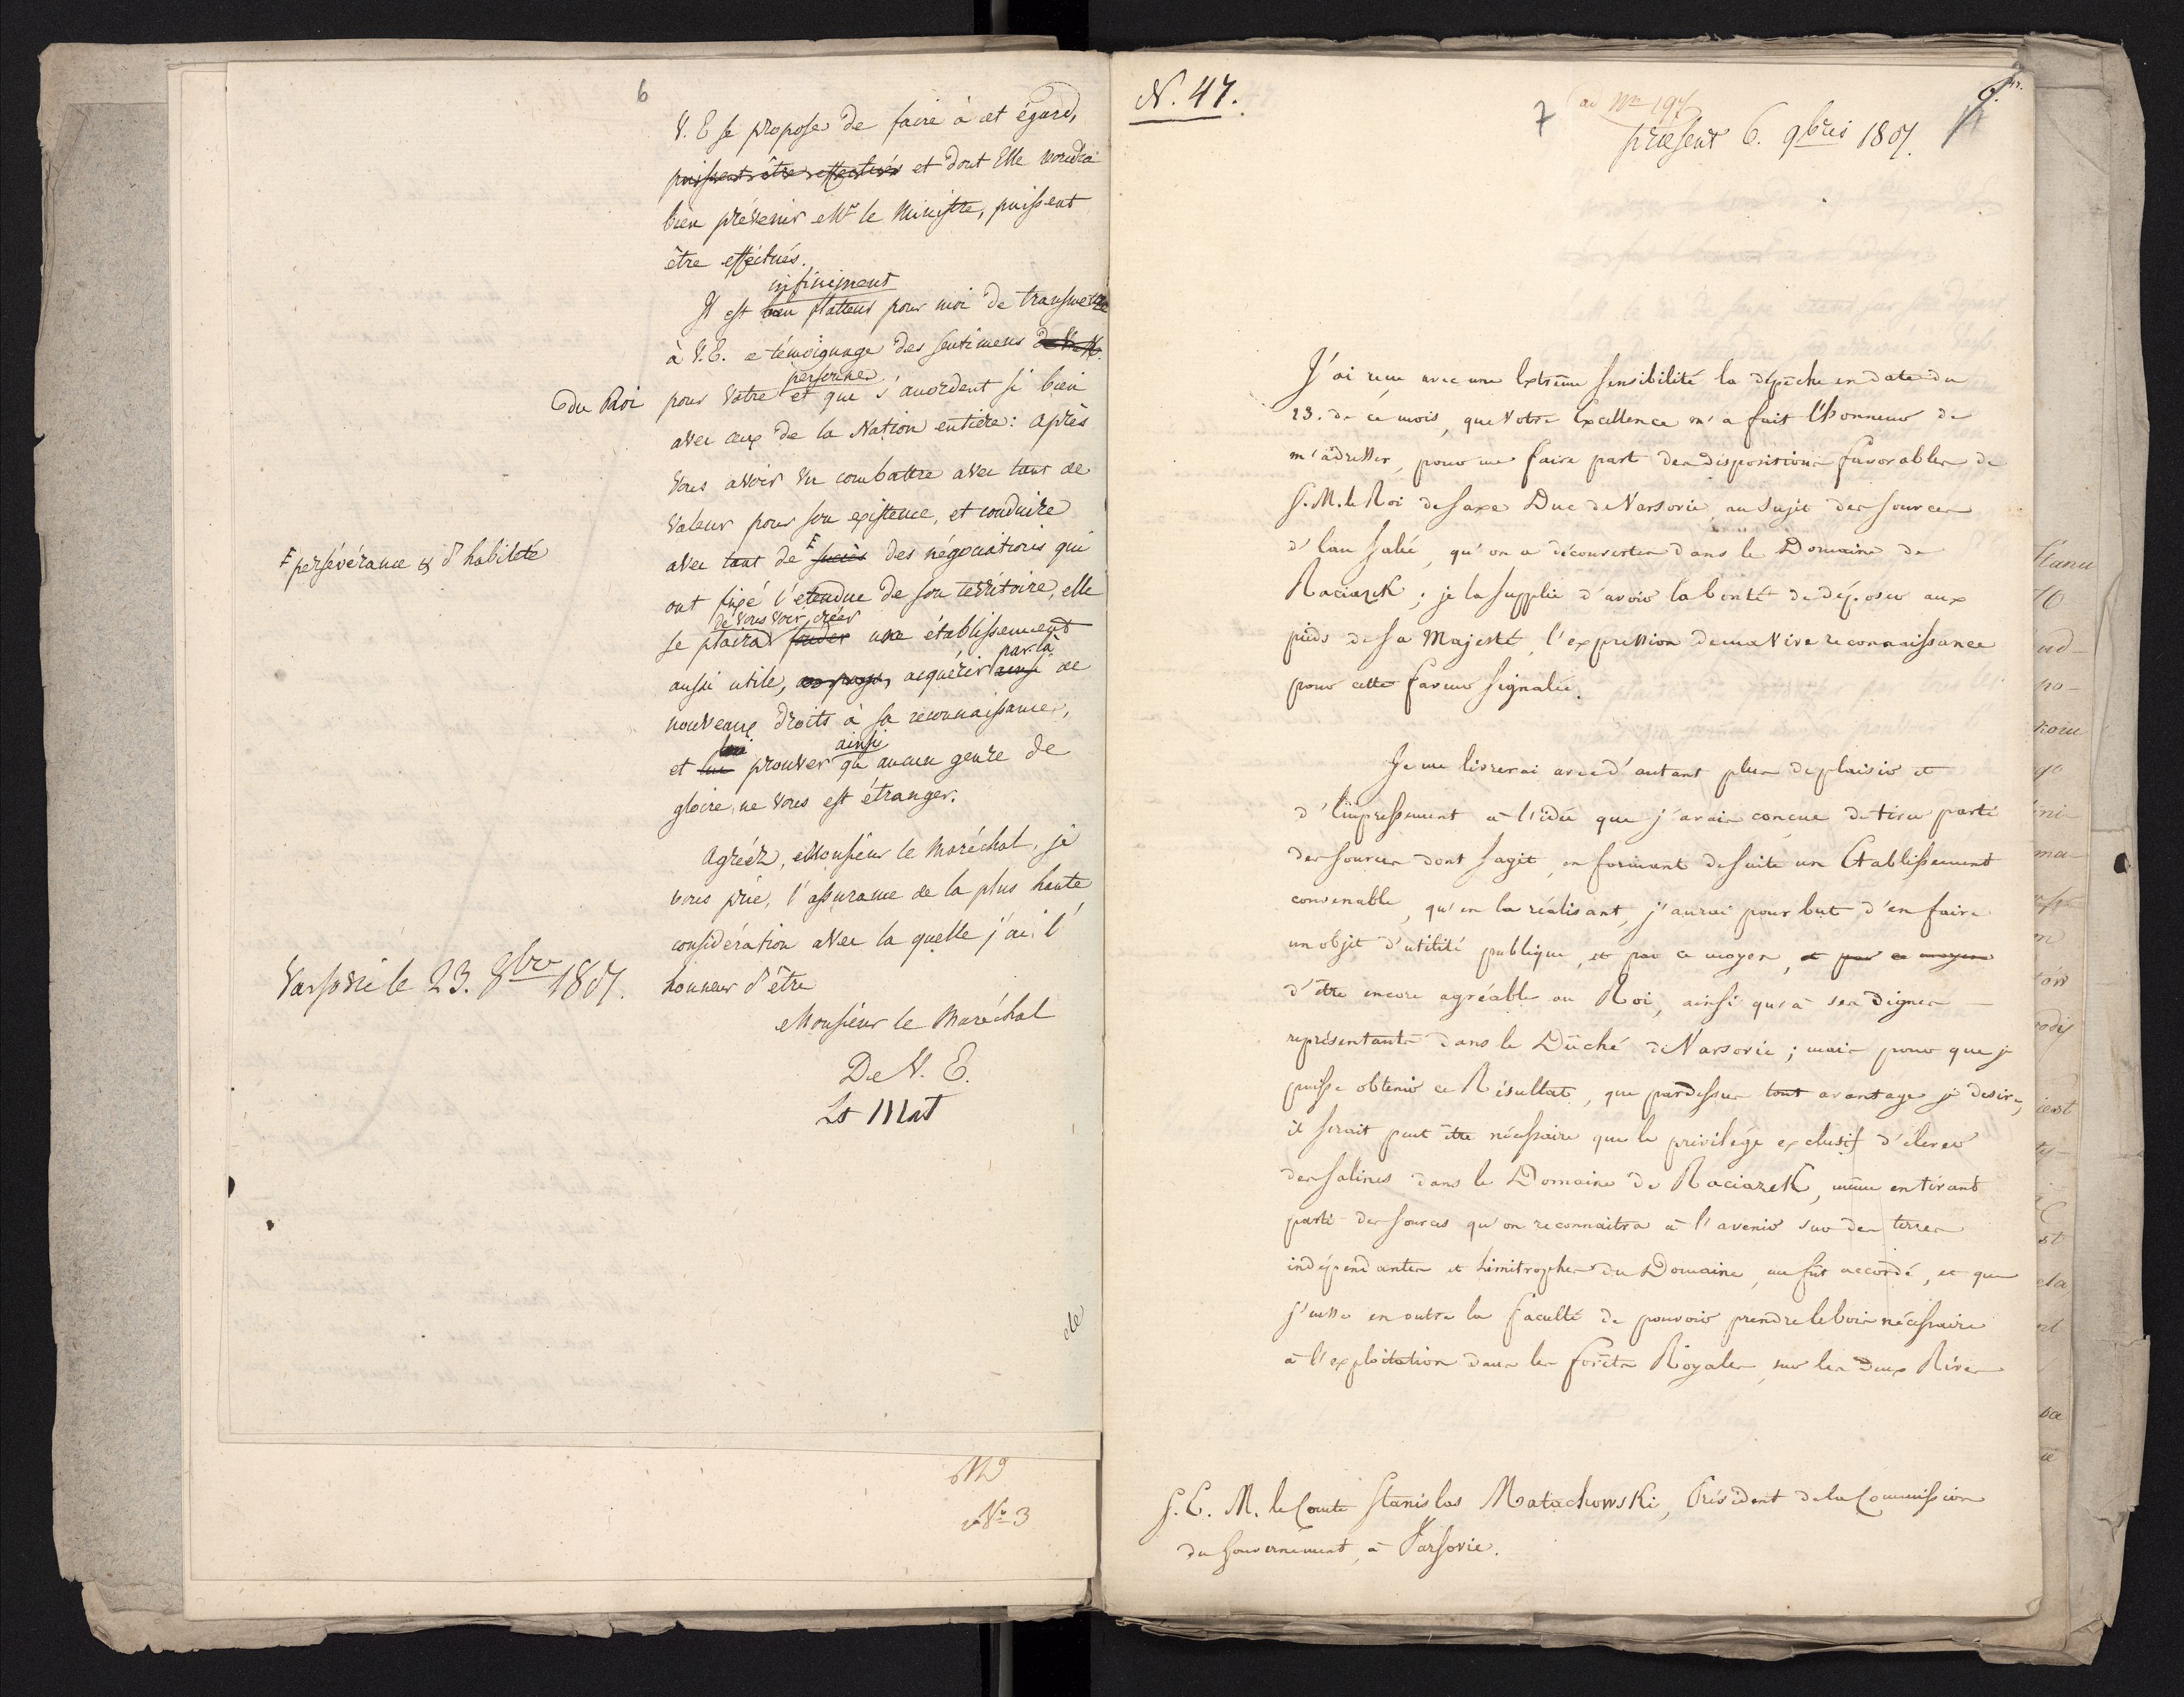 6
V. E se propose de faire à cet égard,
puissent être effectués et dont Elle voudra
bien prévenir Mr. le Ministre, puissent
être effectués.
infiniment
Il est bien flatteur pour moi de transmettre
à V. E. ce témoignage des sentimens de S. M.
du Roi
personne
pour Votre et qui s'accordent si bien
avec ceux de la Nation entière: après
Vous avoir vu combattre avec tant de
valeur pour son existence, et conduire
avec tant de succès des négociations qui
persévérance & d'habileté
ont fixé l'étendue de son territoire, elle
de vous voir créer
se plaira fonder un établissement
par là
aussi utile, au pays, acquérir ainsi de
nouveaux droits à sa reconnaissance,
lui ainsi
et lui prouver qu'aucun genre de
gloire, ne vous est étranger.
Agréez, Monsieur le Maréchal, je
vous prie, l'assurance de la plus haute
considération avec la quelle j'ai l'
honneur d'être
Varsovie le 23. 8bre 1807.
Monsieur le Maréchal
De V. E.
Ls Mat
N. 47.
7
ad Nrm 197
præsent 6. 9bris 1807.
J'ai reçu avec une Extrême sensibilité la dépêche en date du
23. de ce mois, que Votre Excellence m'a fait l'honneur de
m'adresser, pour me faire part des dispositions favorables de
S. M. le Roi de Saxe Duc de Varsovie, au sujet des sources
d'Eau Salée, qu'on a découvertes dans le Domaine de
Raciazek; je la supplie d'avoir la bonté de déposer aux
pieds de Sa Majesté, l'expression de ma Vive reconnaissance
pour cette faveur signalée.
Je me livrerai avec d'autant plus de plaisir et
d'Empressement à l'idée que j'avais conçue de tirer parti
des sources dont s'agit, en formant de suite un Etablissement
convenable, qu'en la réalisant, j'aurai pour but d'en faire
un objet d'utilité publique, et par ce moyen, et par ce moyen
d'être encore agréable au Roi, ainsi qu'à ses dignes
représentants dans le Duché de Varsovie; mais pour que je
puisse obtenir ce Résultat, que pardessus tout avantage je desire,
il serait peut être nécessaire que le privilège exclusif d'élever
des Salines dans le Domaine de Raciazek, même en tirant
parti des sources qu'on reconnaitra à l'avenir sur des terres
indépendantes et limitrophes du Domaine, me fût accordé, et que
j'eusse en outre la faculté de pouvoir prendre le bois nécessaire
à l'exploitation dans les forêts Royales, sur les deux Rives
S. E. M. le Comte Stanislas Matachowski, Président de la Commission
du Gouvernement, à Varsovie.
No 3